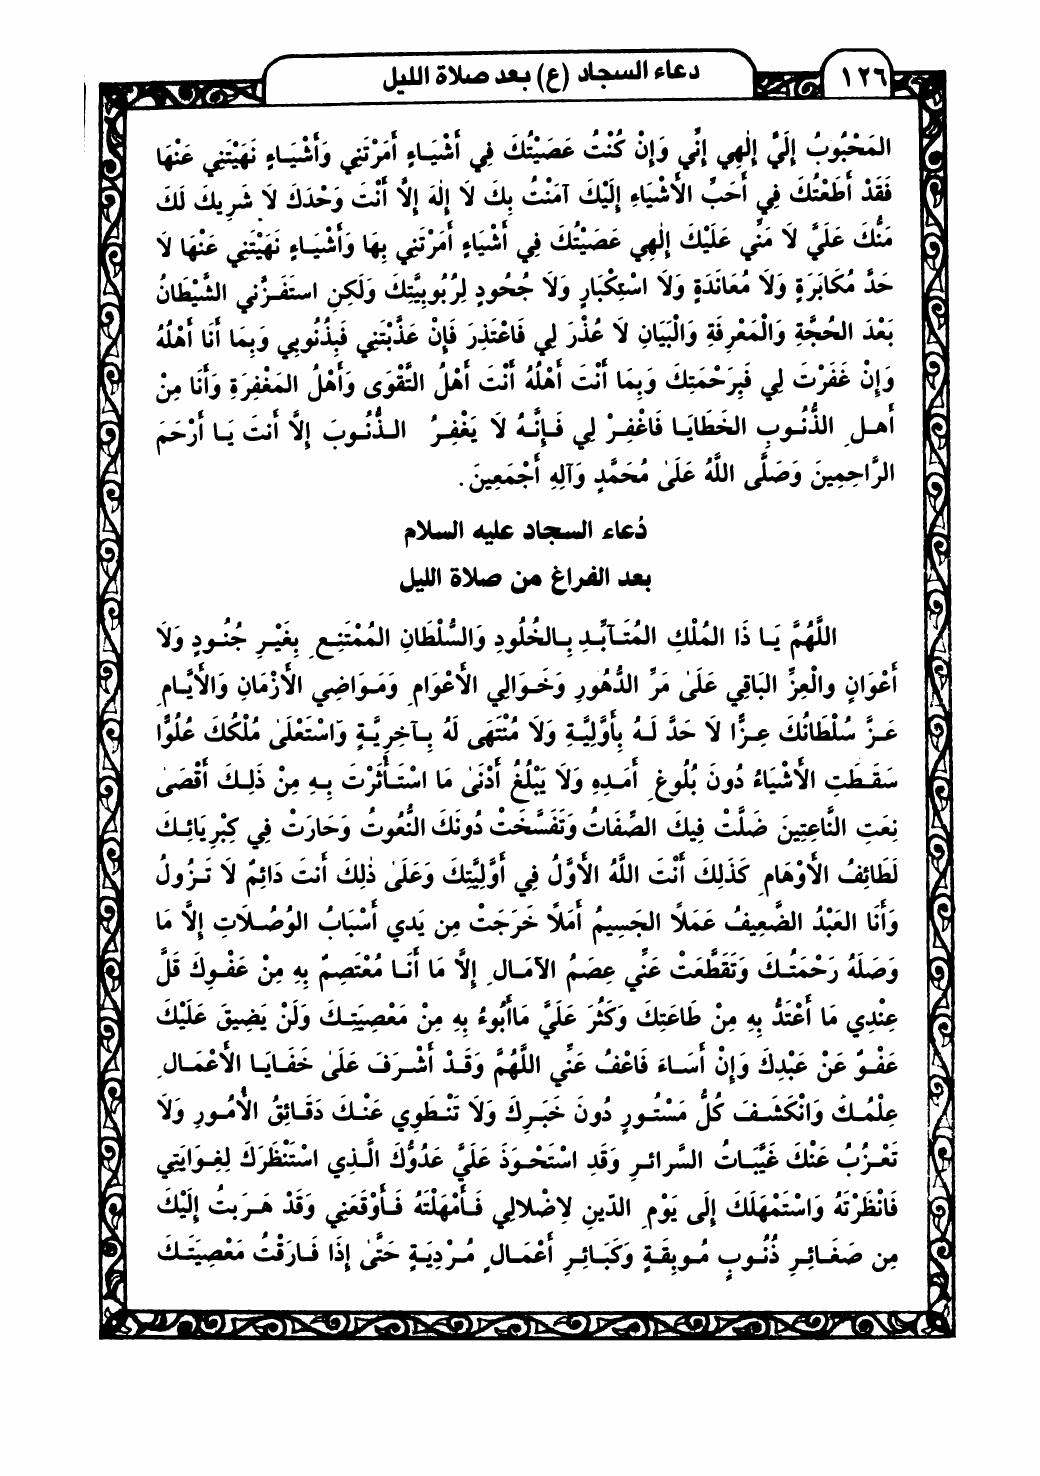 ١٢٦
دعاء السجاد (ع) بعد صلاة الليل
المَحْبُوبُ إِلَيَّ إِلٰهِي إِنِّي وَإِنْ كُنْتُ عَصَيْتُكَ فِي أَشْيَـاءٍ أَمَرْتَنِي وَأَشْيَـاءٍ نَهَيْتَنِي عَنْهَا
فَقَدْ أَطَعْتُكَ فِي أَحَبِّ الأَشْيَاءِ إِلَيْكَ آمَنْتُ بِكَ لَا إِلٰهَ إِلَّا أَنْتَ وَحْدَكَ لَا شَرِيكَ لَكَ
مَنُّكَ عَلَيَّ لَا مَنِّي عَلَيْكَ إِلٰهِي عَصَيْتُكَ فِي أَشْيَاءٍ أَمَرْتَنِي بِهَا وَأَشْيَـاءٍ نَهَيْتَنِي عَنْهَا لَا
حَدَّ مُكَابَرَةٍ وَلَا مُعَانَدَةٍ وَلَا اسْتِكْبَارٍ وَلَا جُحُودٍ لِرُبُوبِيَّتِكَ وَلَكِنِ استَفَـزَّنِي الشَّيْطَانُ
بَعْدَ الحُجَّةِ وَالْمَعْرِفَةِ وَالْبَيَانِ لَا عُذْرَ لِي فَاعْتَذِرَ فَإِنْ عَذَّبْتَنِي فَبِذُنُوبِي وَبِمَا أَنَا أَهْلُهُ
وَإِنْ غَفَرْتَ لِي فَبِرَحْمَتِكَ وَبِمَا أَنْتَ أَهْلُهُ أَنْتَ أَهْلُ التَّقْوَى وَأَهْلُ المَغْفِرَةِ وَأَنَا مِنْ
أَهـلِ الذُّنُـوبِ الخَطَايَـا فَاغْفِـرْ لِي فَـإِنَّـهُ لَا يَغْفِـرُ الـذُّنُـوبَ إِلَّا أَنتَ يَـا أَرْحَمَ
الرَّاحِمِينَ وَصَلَّى اللَّهُ عَلَىٰ مُحَمَّدٍ وَآلِهِ أَجْمَعِينَ.
دُعاء السجاد عليه السلام
بعد الفراغ من صلاة الليل
اللَّهُمَّ يَـا ذَا المُلْكِ المُتَـأَبِّـدِ بِـالخُلُودِ وَالسُّلْطَانِ المُمْتَنِـعِ بِغَيْـرِ جُنُـودٍ وَلَا
أَعْوَانٍ والْعِزِّ البَاقِي عَلَىٰ مَرِّ الدُّهُورِ وَخَـوَالِي الأَعْوَامِ وَمَـوَاضِي الأَزْمَانِ وَالأَيَّـامِ
عَـزَّ سُلْطَانُكَ عِـزًّا لَا حَدَّ لَـهُ بِأَوَّلِيَّـةٍ وَلَا مُنْتَهَى لَهُ بِـآخِرِيَّـةٍ وَاسْتَعْلَىٰ مُلْكُكَ عُلُوًّا
سَقَـطَتِ الأَشْيَاءُ دُونَ بُلُوغِ أَمَـدِهِ وَلَا يَبْلُغُ أَدْنَىٰ مَا اسْتَـأْثَرْتَ بِـهِ مِنْ ذَلِـكَ أَقْصَىٰ
نَعِتِ النَّاعِتِينَ ضَلَّتْ فِيكَ الصِّفَاتُ وَتَفَسَّخَتْ دُونَكَ النُّعُوتُ وَحَارَتْ فِي كِبْرِيَائِـكَ
لَطَائِفُ الأَوْهَامِ كَذَلِكَ أَنْتَ اللَّهُ الأَوَّلُ فِي أَوَّلِيَّتِكَ وَعَلَىٰ ذٰلِكَ أَنتَ دَائِمٌ لَا تَـزُولُ
وَأَنَا العَبْدُ الضَّعِيفُ عَمَلًا الجَسِيمُ أَمَلًا خَرَجَتْ مِن يَدِي أَسْبَابُ الوُصُـلَاتِ إِلَّا مَا
وَصَلَهُ رَحْمَتُـكَ وَتَقَطَّعَتْ عَنِّي عِصَمُ الآمَـالِ إِلَّا مَا أَنَـا مُعْتَصِمٌ بِهِ مِنْ عَفْـوِكَ قَلَّ
عِنْدِي مَا أَعْتَدُّ بِهِ مِنْ طَاعَتِكَ وَكَثُرَ عَلَيَّ مَاأَبُوءُ بِهِ مِنْ مَعْصِيَتِـكَ وَلَنْ يَضِيقَ عَلَيْكَ
عَفْـوٌ عَنْ عَبْدِكَ وَإِنْ أَسَـاءَ فَاعْفُ عَنِّي اللَّهُمَّ وَقَـدْ أَشْـرَفَ عَلَىٰ خَفَـايَـا الأَعْمَـالِ
عِلْمُـكَ وَانْكَشَـفَ كُلُّ مَسْتُـورٍ دُونَ خَبَرِكَ وَلَا تَنْـطَوِي عَنْـكَ دَقَـائِقُ الأُمُـورِ وَلَا
تَعْـزُبُ عَنْكَ غَيِّبَـاتُ السَّرائـرِ وَقَدِ اسْتَحْـوَذَ عَلَيَّ عَدُوُّكَ الَّـذِي اسْتَنْظَرَكَ لِغِـوَايَتِي
فَانْظَرْتَهُ وَاسْتَمْهَلَكَ إِلَى يَوْمِ الدّينِ لِاضْلَالِي فَـأَمْهَلْتَهُ فَـأَوْقَعَنِي وَقَدْ هَـرَبتُ إِلَيْكَ
مِن صَغَـائِـرِ ذُنُـوبٍ مُـوبِقَـةٍ وَكَبَـائِـرِ أَعْمَـالٍ مُـرْدِيَـةٍ حَتَّىٰ إِذَا فَـارَقْتُ مَعْصِيَتَـكَ